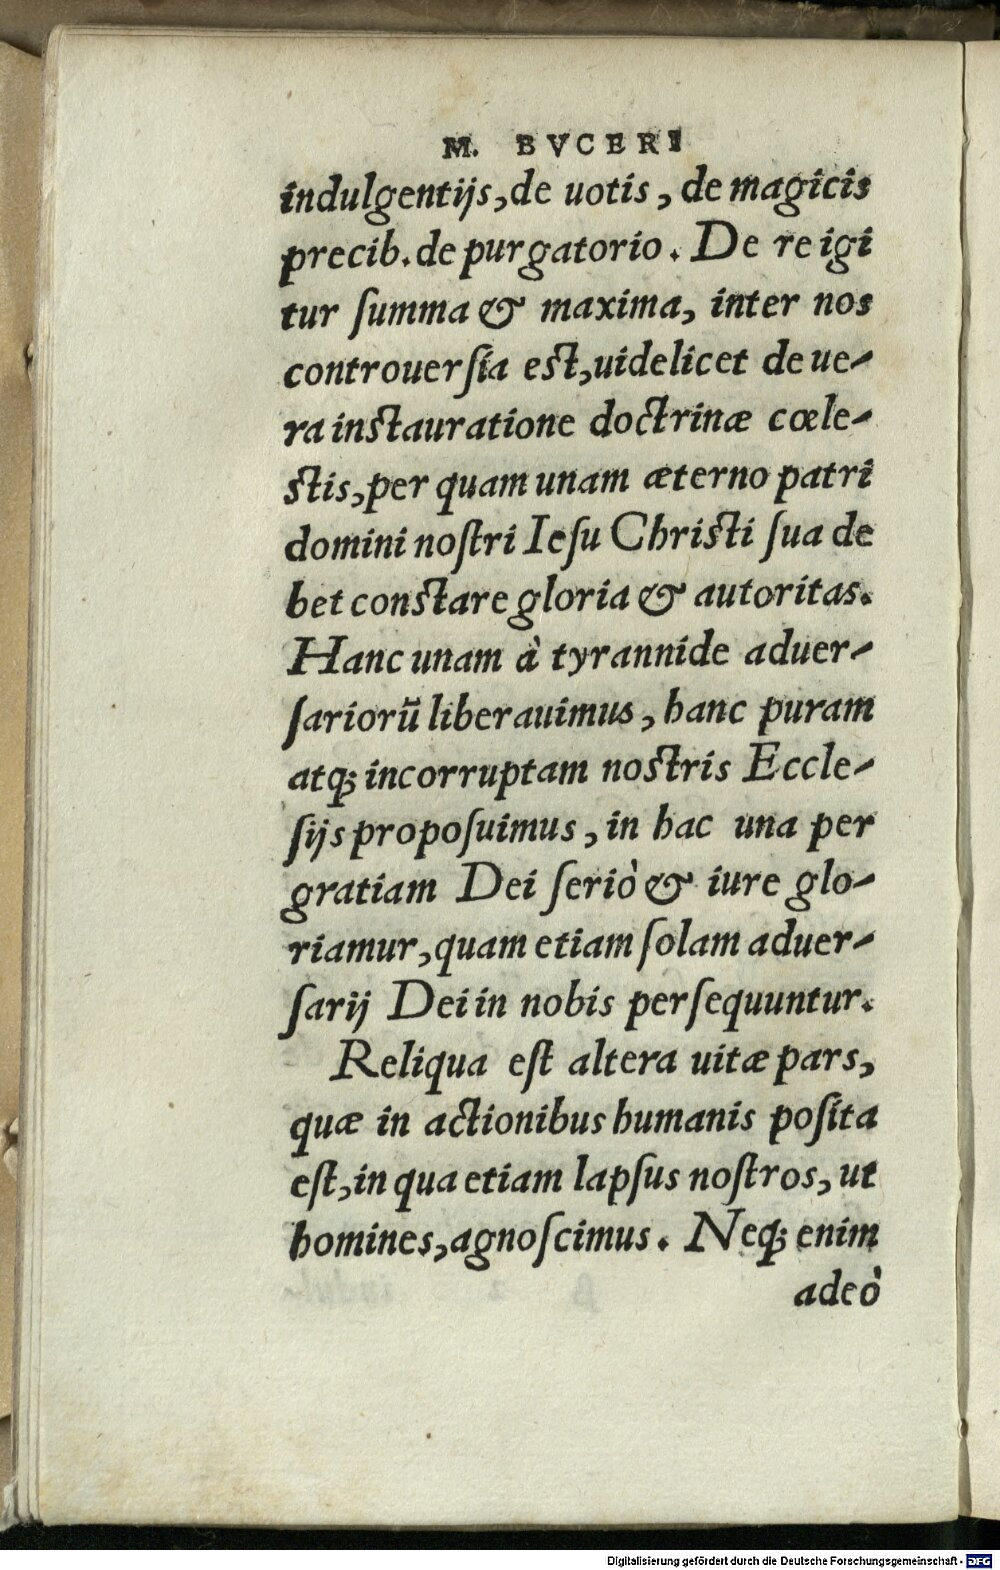 M. BVCERI
indulgentijs, de uotis, de magicis
precib. de purgatorio. De re igi
tur ſumma & maxima, inter nos
controuerſia eſt, uidelicet de ue-
ra inſtauratione doctrinæ cœle-
ſtis, per quam unam æterno patri
domini noſtri Ieſu Chriſti ſua de
bet conſtare gloria & autoritas.
Hanc unam à tyrannide aduer-
ſariorũ liberauimus, hanc puram
atq; incorruptam noſtris Eccle-
ſijs propoſuimus, in hac una per
gratiam Dei ſeriò & iure glo-
riamur, quam etiam ſolam aduer-
ſarij Dei in nobis perſequuntur.
Reliqua eſt altera uitæ pars,
quæ in actionibus humanis poſita
eſt, in qua etiam lapſus noſtros, ut
homines, agnoſcimus. Neq; enim
adeò
Digitalisierung gefördert durch die Deutsche Forschungsgemeinschaft - DFG